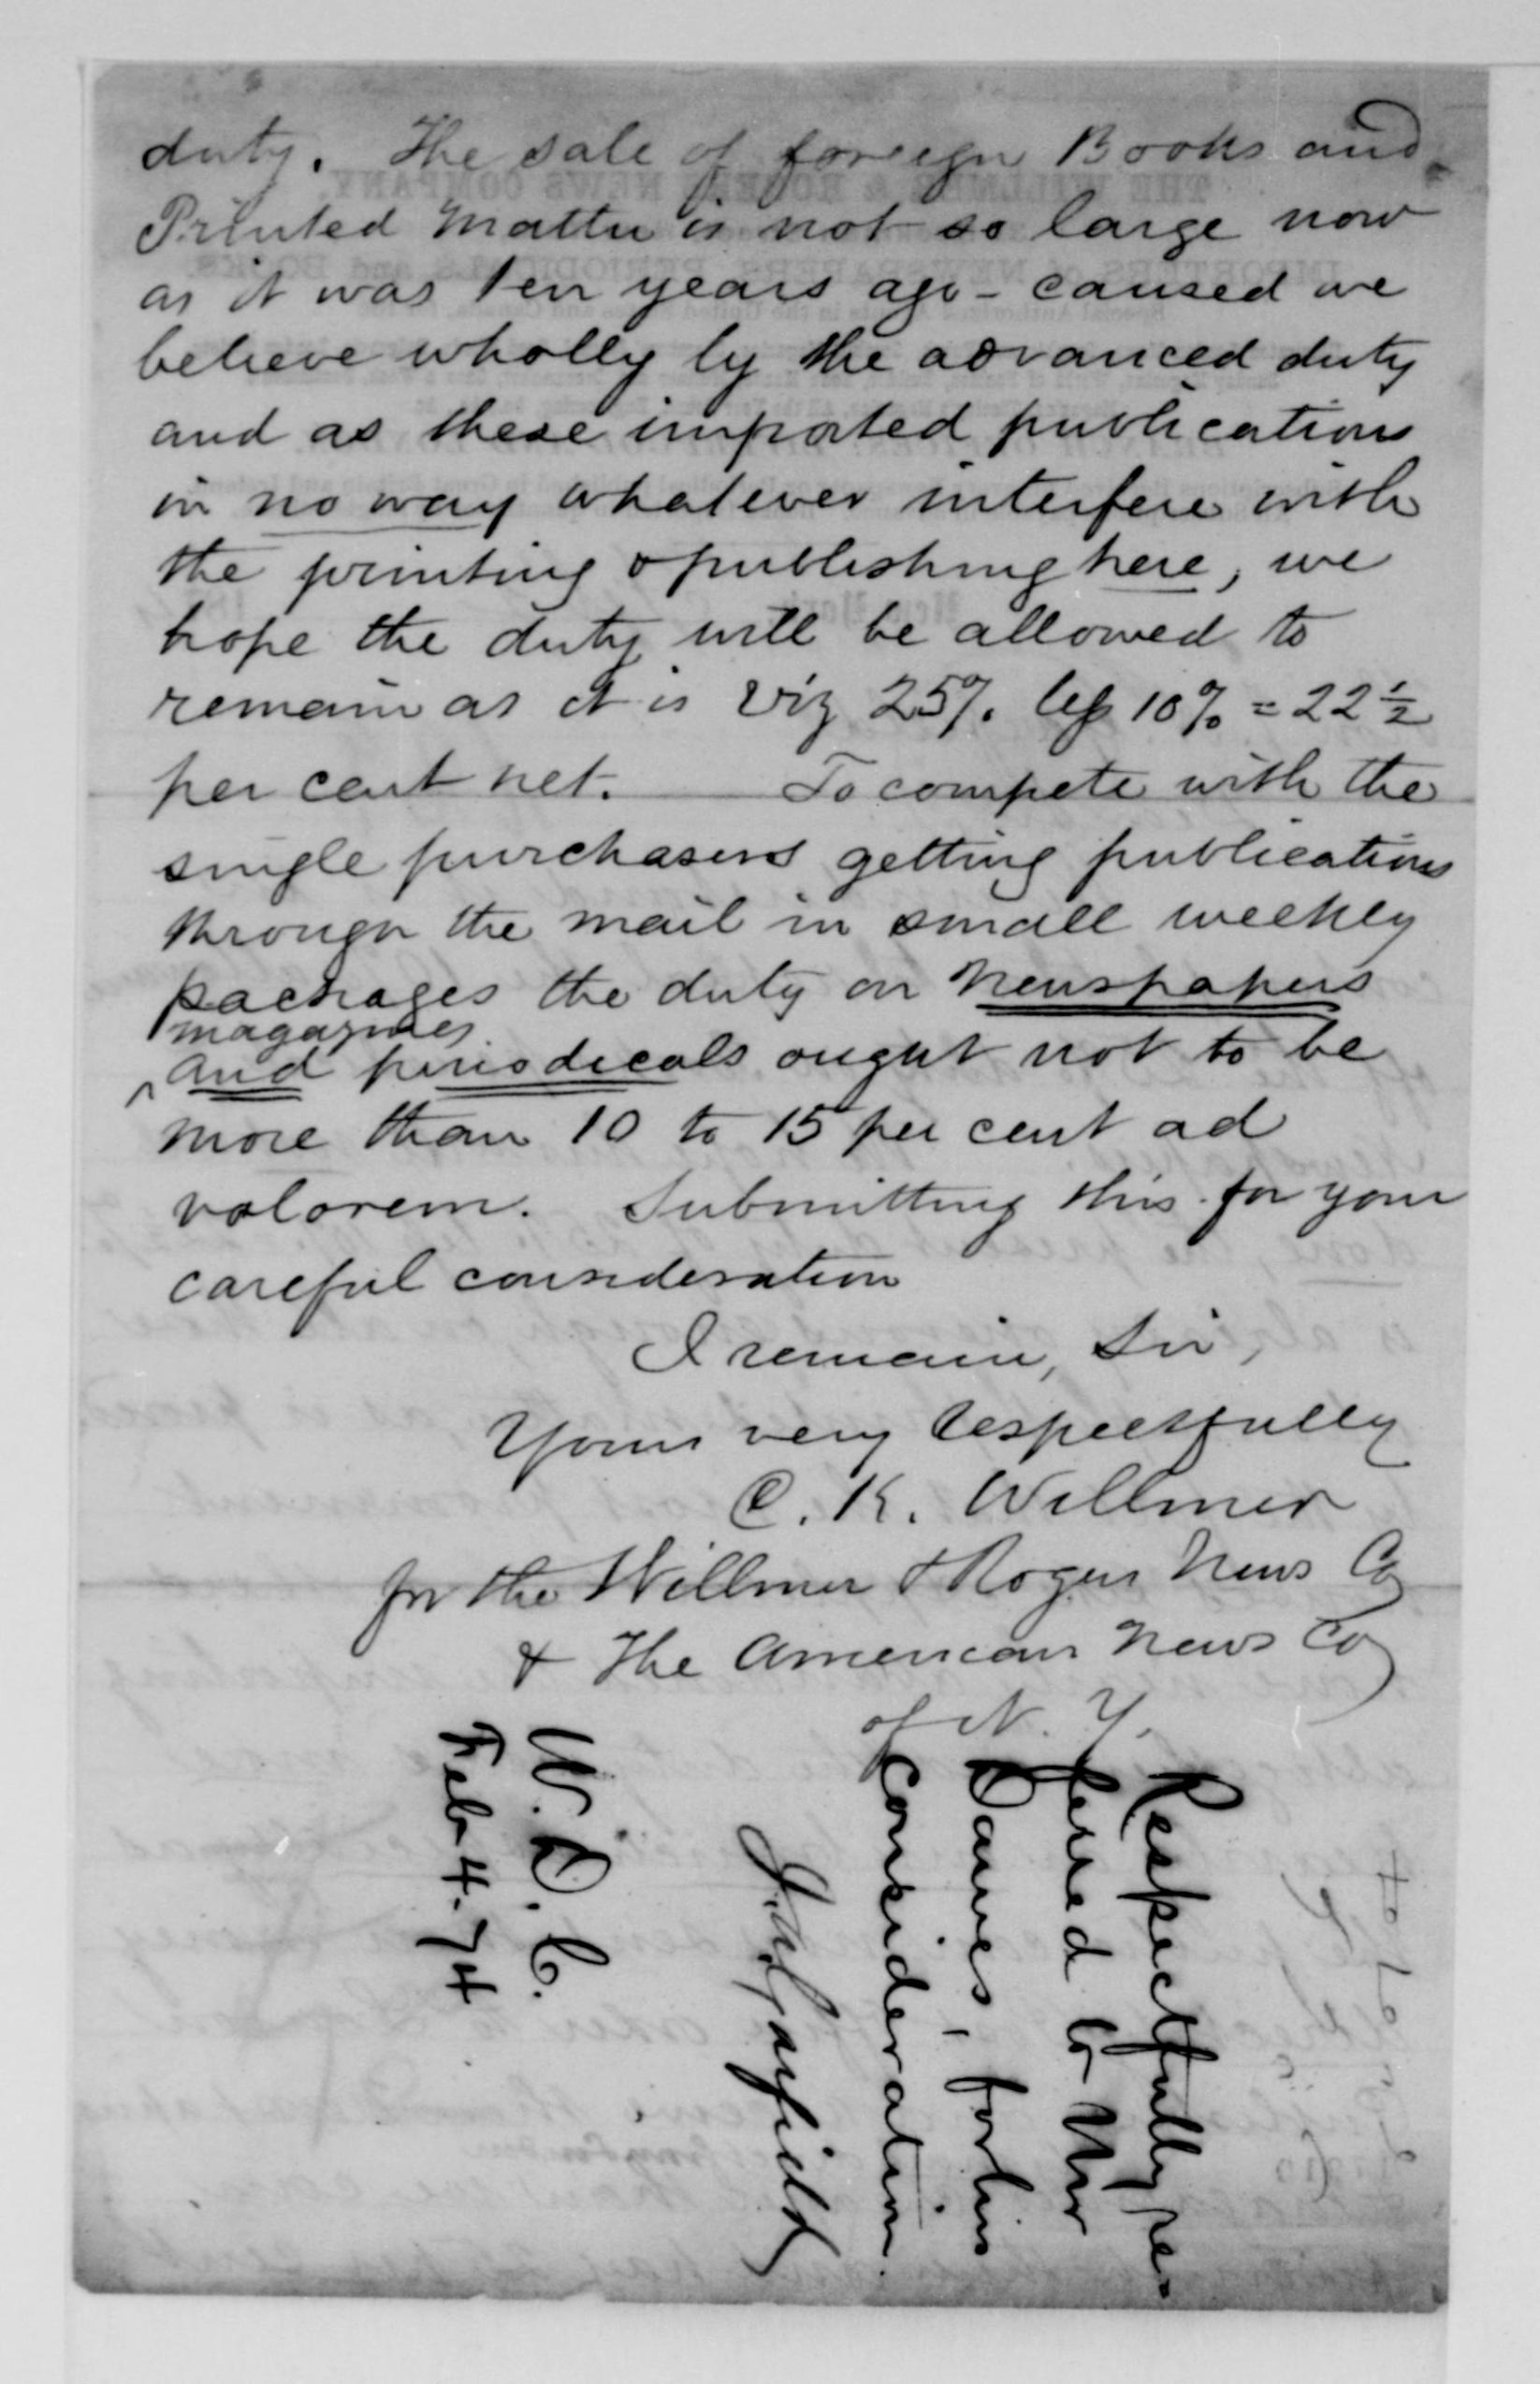 duty. The sale of foreign Books and
Printed Matter is not so large now
as it was ten years ago - caused we
believe wholly by the advanced duty
and as these imported publications
in no way whatever interfere with
the printing & publishing here, we
hope the duty will be allowed to
remain as it is viz 25%. less 10% = 22 ½
per cent net. To compete with the
single purchasers getting publications
through the mail in small weekly
packages the duty on Newspapers
magazines
^ and periodicals ought not to be
more than 10 to 15 per cent ad
valorem. Submitting this for your
careful consideration
I remain, Sir,
Yours very respectfully
C. K. Willmer
for the Willmer & Rogers News Co
& The American News Co
of N. Y.
Respectfully re-
ferred to Mr
Dawes, for his
Consideration.
J. A. Garfield
W. D. C.
Feb 4. 74